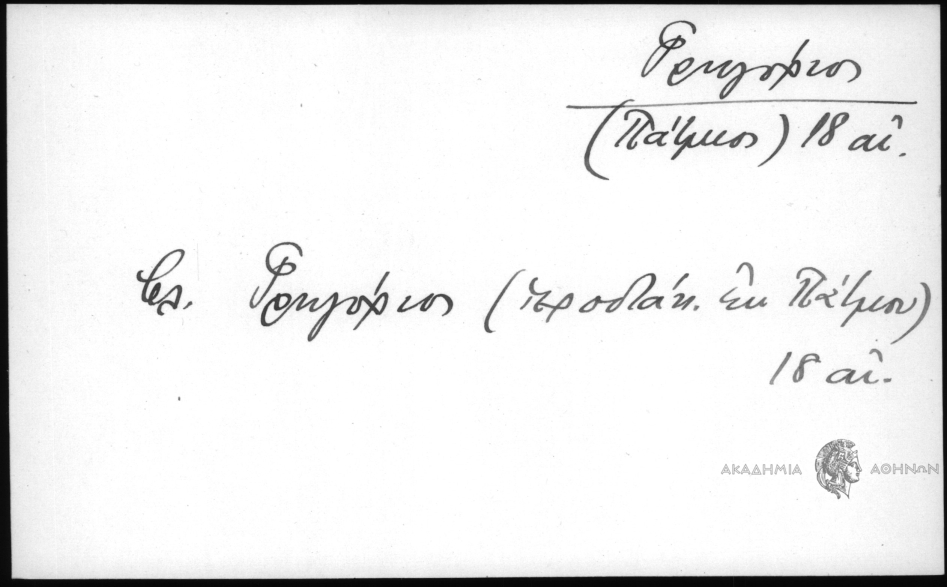 Γρηγόριος
(Πάτμος) 18 αἰ.
βλ. Γρηγόριος (ἱεροδιάκ. ἐκ Πάτμου)
18 αἰ.
ΑΚΑΔΗΜΙΑ ΑΘΗΝΩΝ